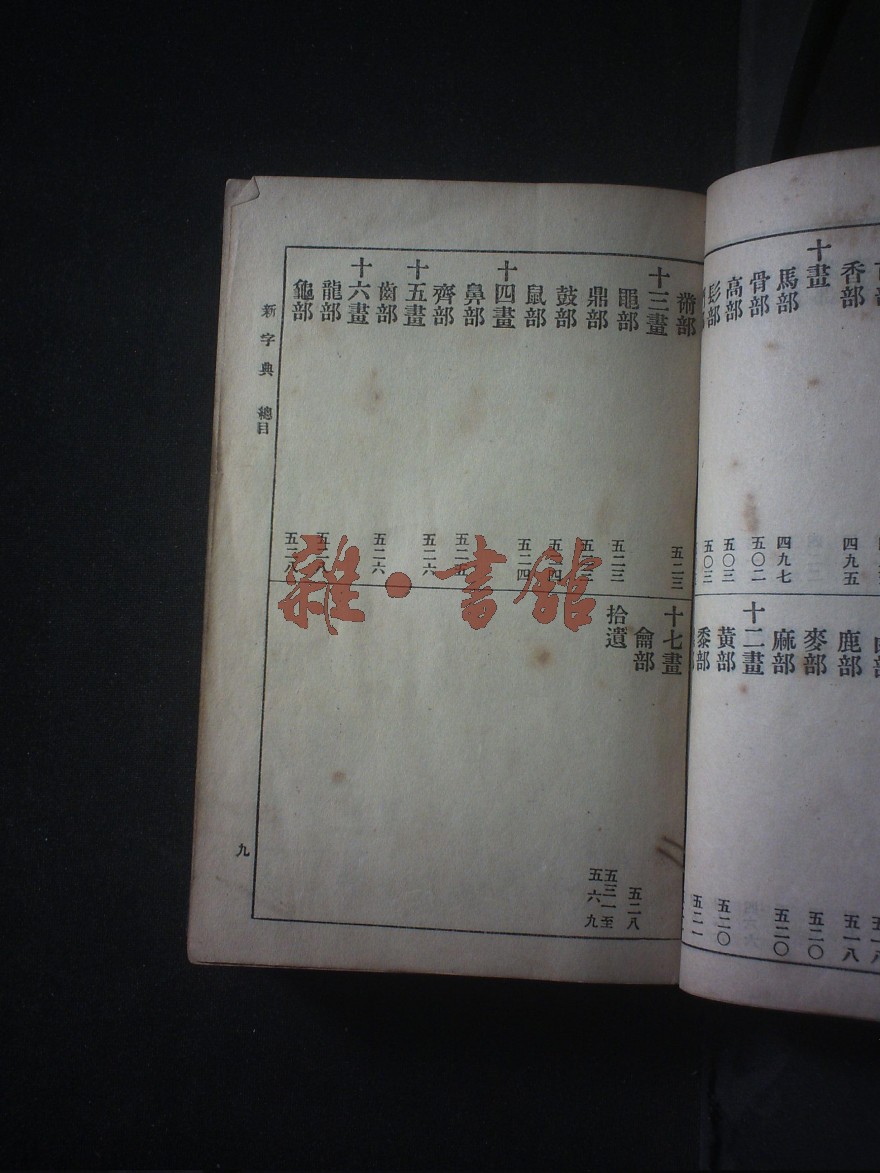 香部
四九五
十畫
馬部
四九七
骨部
五〇二
高部
五〇三
髟部
五〇三
鹿部
五一八
麥部
五二〇
麻部
五二〇
十二畫
黃部
五二〇
黍部
五二一
黹部
五二三
十三畫
黽部
五二三
鼎部
鼓部
鼠部
五二四
十四畫
鼻部
齊部
十五畫
五二六
齒部
五二六
十六畫
龍部
龜部
五二八
十七畫
龠部
五二八
拾遺
五三一至
五六九
新字典 總目
九
雜·書館